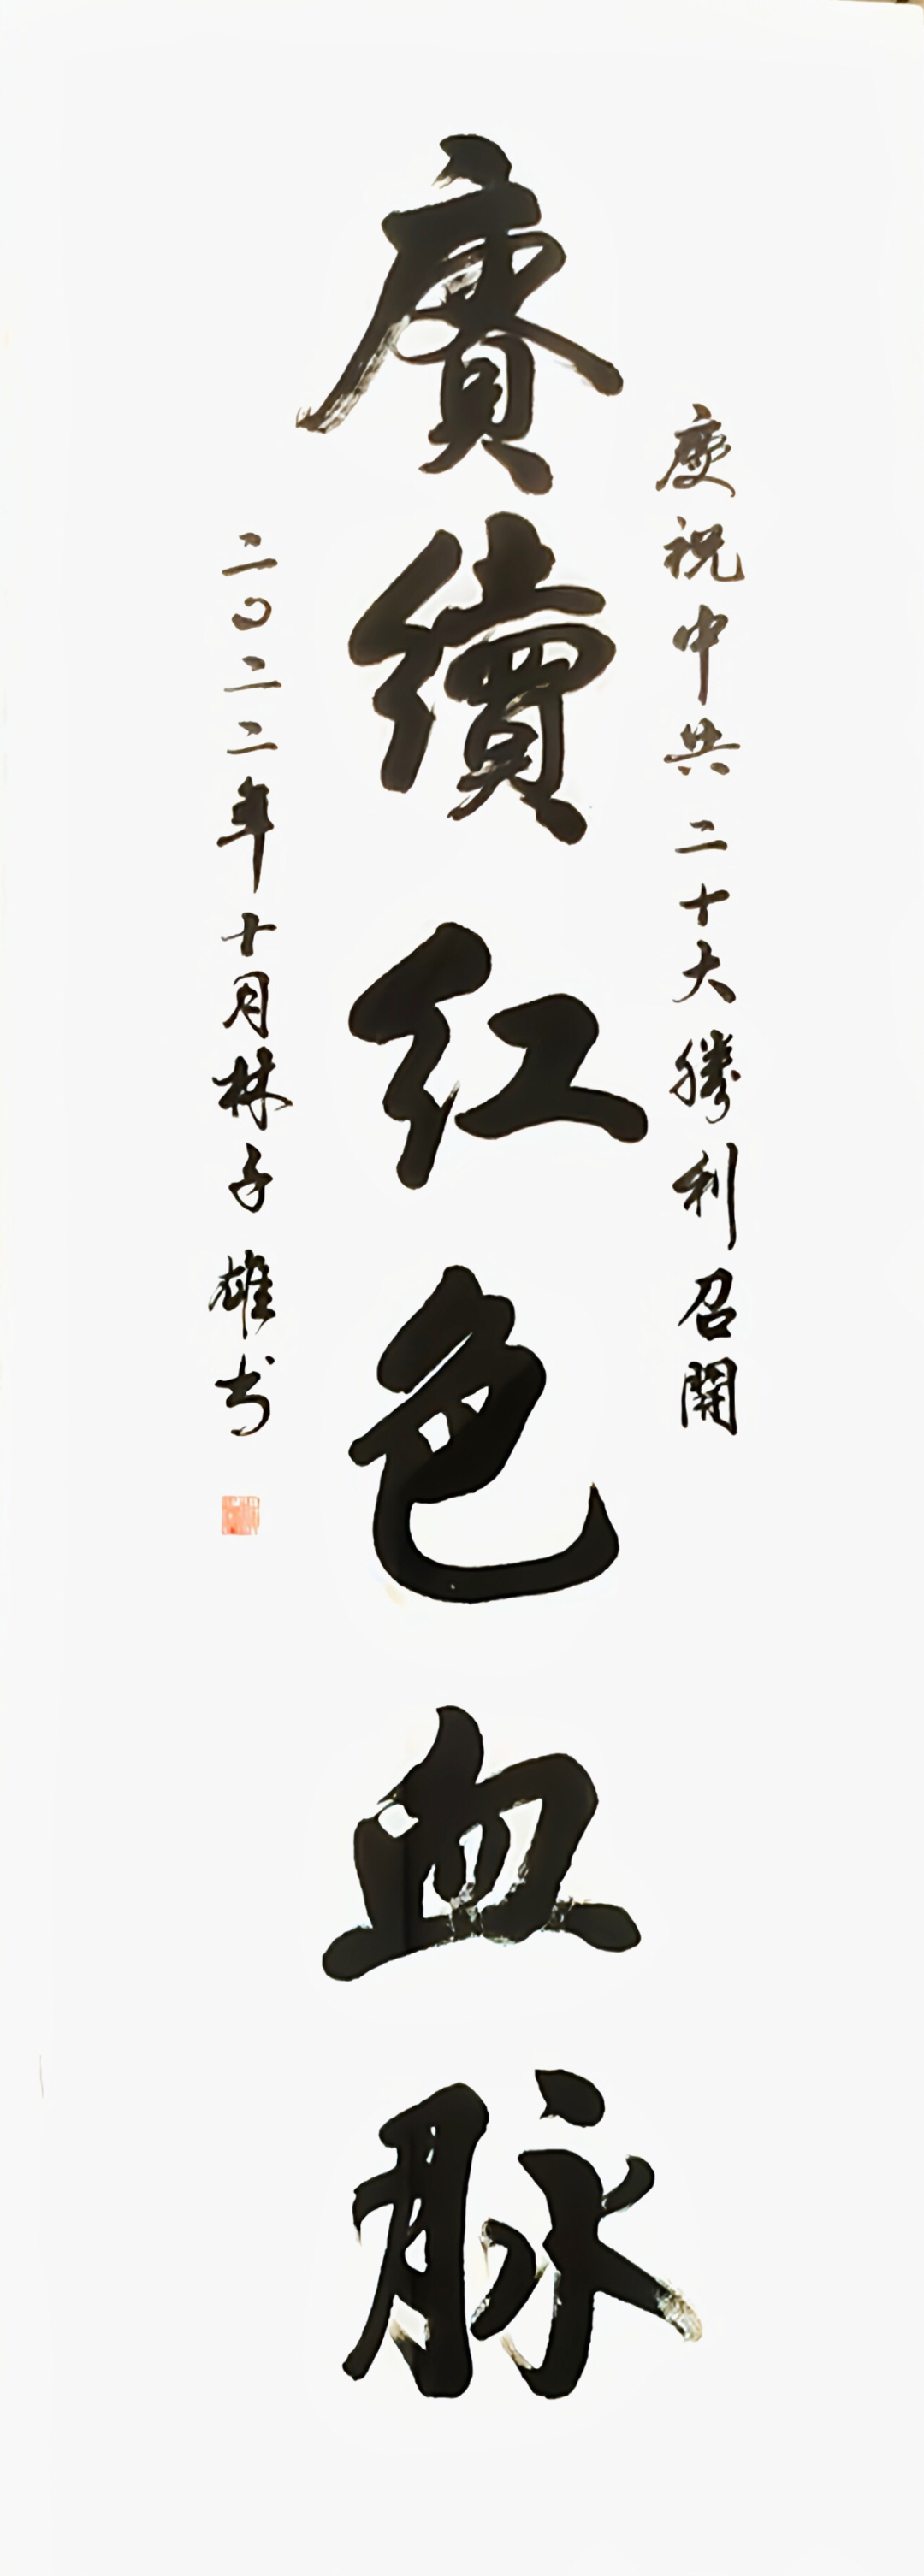 慶祝中共二十大勝利召開
賡續红色血脉
二〇二二年十月林子雄书